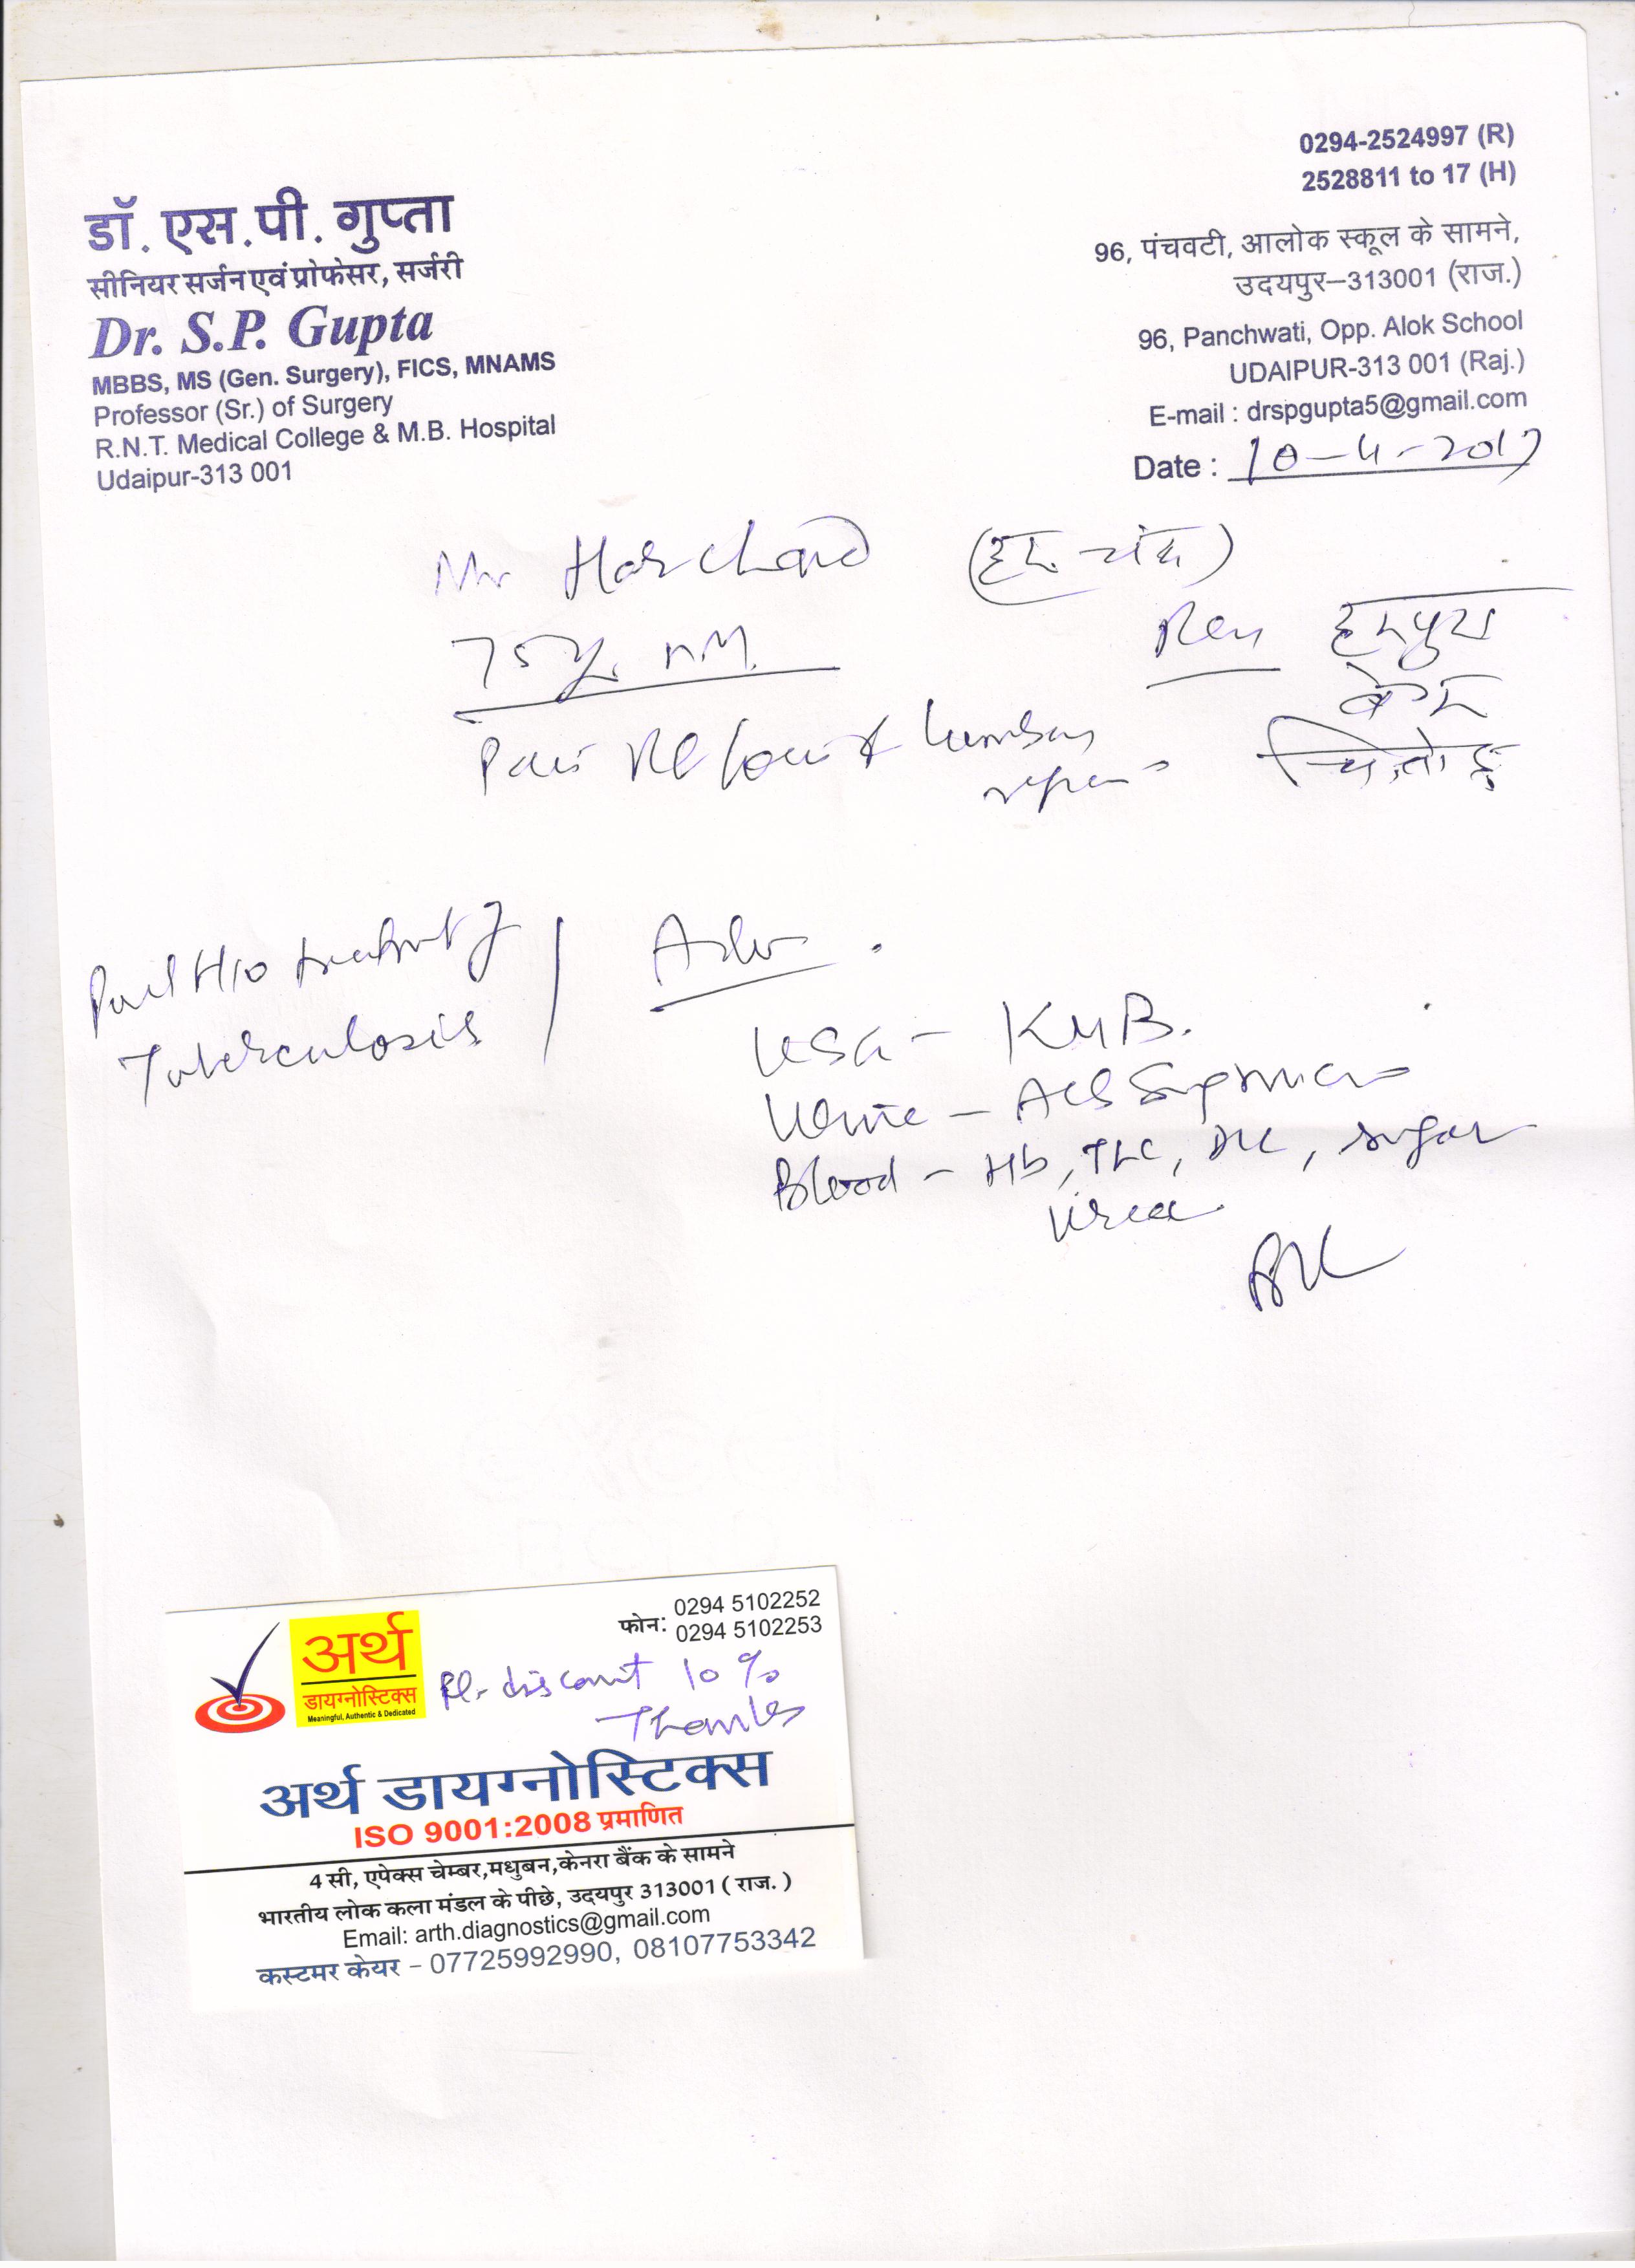 0294-2524997 (R)
2528811 to 17 (H)
डॉ. एस.पी. गुप्ता
सीनियर सर्जन एवं प्रोफेसर, सर्जरी
Dr. S.P. Gupta
MBBS, MS (Gen. Surgery), FICS, MNAMS
Professor (Sr.) of Surgery
R.N.T. Medical College & M.B. Hospital
Udaipur-313 001
96, पंचवटी, आलोक स्कूल के सामने,
उदयपुर–313001 (राज.)
96, Panchwati, Opp. Alok School
UDAIPUR-313 001 (Raj.)
E-mail : drspgupta5@gmail.com
Date : 10-4-2017
Mr Harchand (हरचंद)
75
Lumbar
Past H/O treatment of
Tuberculosis
Adv.
USG - KUB.
Urine -
Blood - Hb, TLC, DLC, sugar
Urea
फोन: 0294 5102252
0294 5102253
अर्थ
डायग्नोस्टिक्स
Meaningful, Authentic & Dedicated
Pl. discount 10%
Thanks
अर्थ डायग्नोस्टिक्स
ISO 9001:2008 प्रमाणित
4 सी, एपेक्स चेम्बर,मधुबन,केनरा बैंक के सामने
भारतीय लोक कला मंडल के पीछे, उदयपुर 313001 ( राज. )
Email: arth.diagnostics@gmail.com
कस्टमर केयर - 07725992990, 08107753342